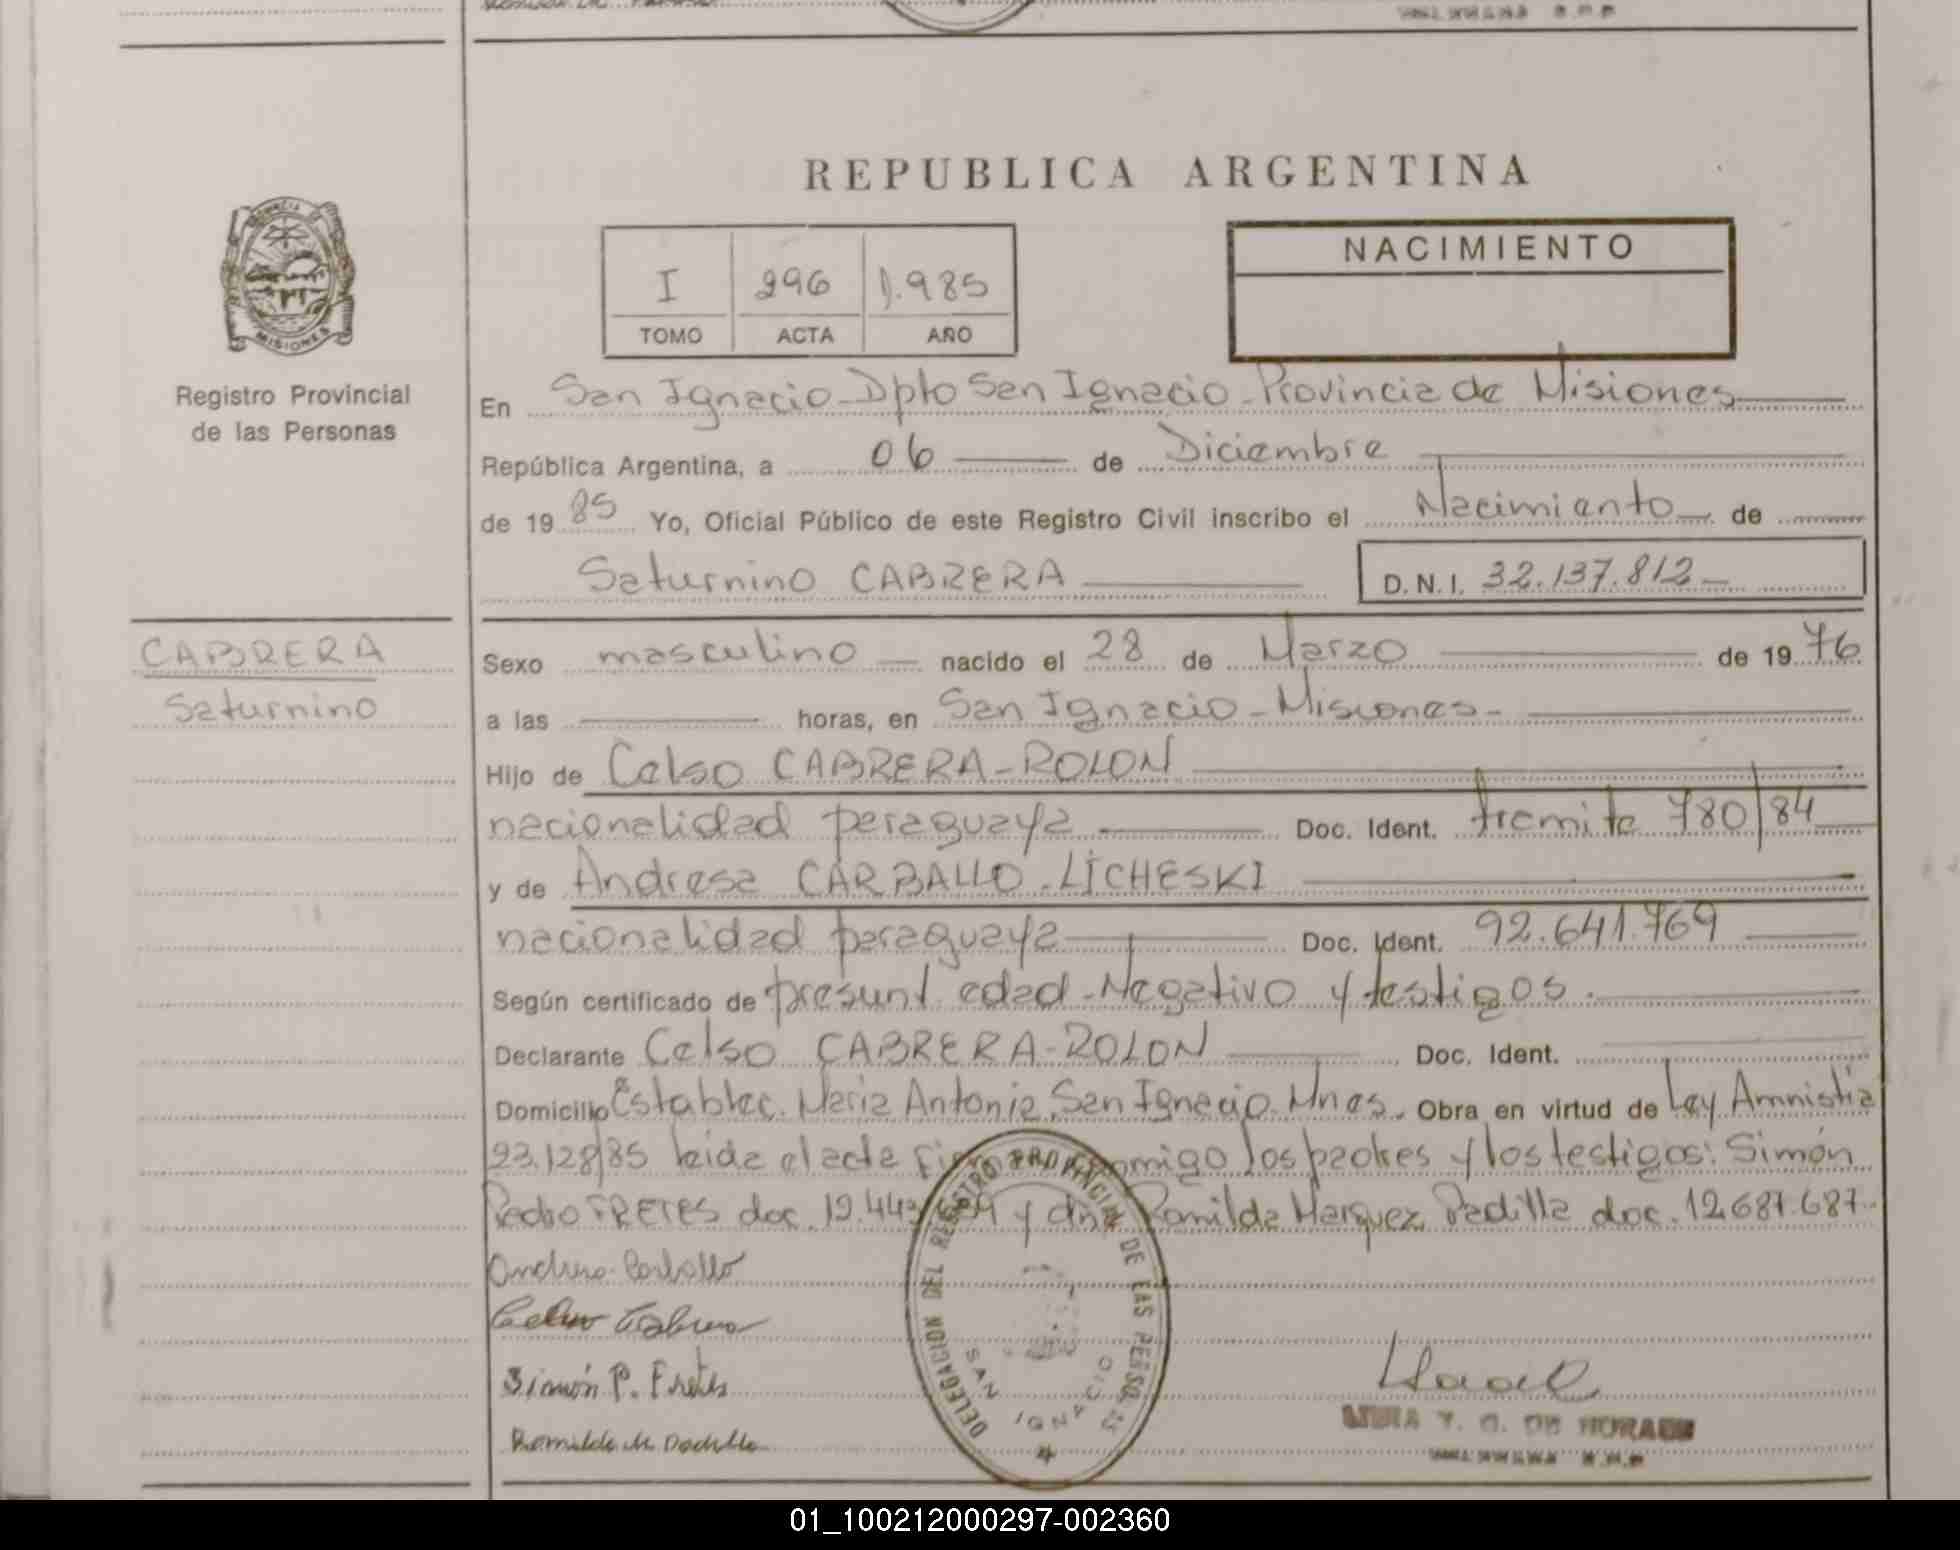 REPUBLICA ARGENTINA
PROVINCIA DE MISIONES
Registro Provincial
de las Personas
I 296 1.985
TOMO ACTA AÑO
NACIMIENTO
En San Ignacio - Dpto San Ignacio - Provincia de Misiones
República Argentina, a 06 de Diciembre
de 19 85 Yo, Oficial Público de este Registro Civil inscribo el Nacimiento de
Saturnino CABRERA D.N.I. 32.137.812
CABRERA
Saturnino
Sexo masculino nacido el 28 de Marzo de 19 76
a las horas, en San Ignacio - Misiones -
Hijo de Celso CABRERA - ROLON
nacionalidad paraguaya Doc. Ident. tramite 780/84
y de Andresa CARBALLO - LICHESKI
nacionalidad paraguaya Doc. Ident. 92.641.769
Según certificado de presunt. edad - Negativo y testigos.
Declarante Celso CABRERA - ROLON Doc. Ident.
Domicilio Establec. Maria Antonia, San Ignacio. Mnes. Obra en virtud de Ley Amnistia
23.128/85 leida el acta los padres y los testigos: Simón
Pedro FRETES doc. y dña Romilda Marquez Padilla doc. 12.687.687.
Andresa Carballo
Celso Cabrera
Simón P. Fretes
Romilda M Padilla
DELEGACION DEL REGISTRO PROVINCIAL DE LAS PERSONAS
SAN IGNACIO
01_100212000297-002360